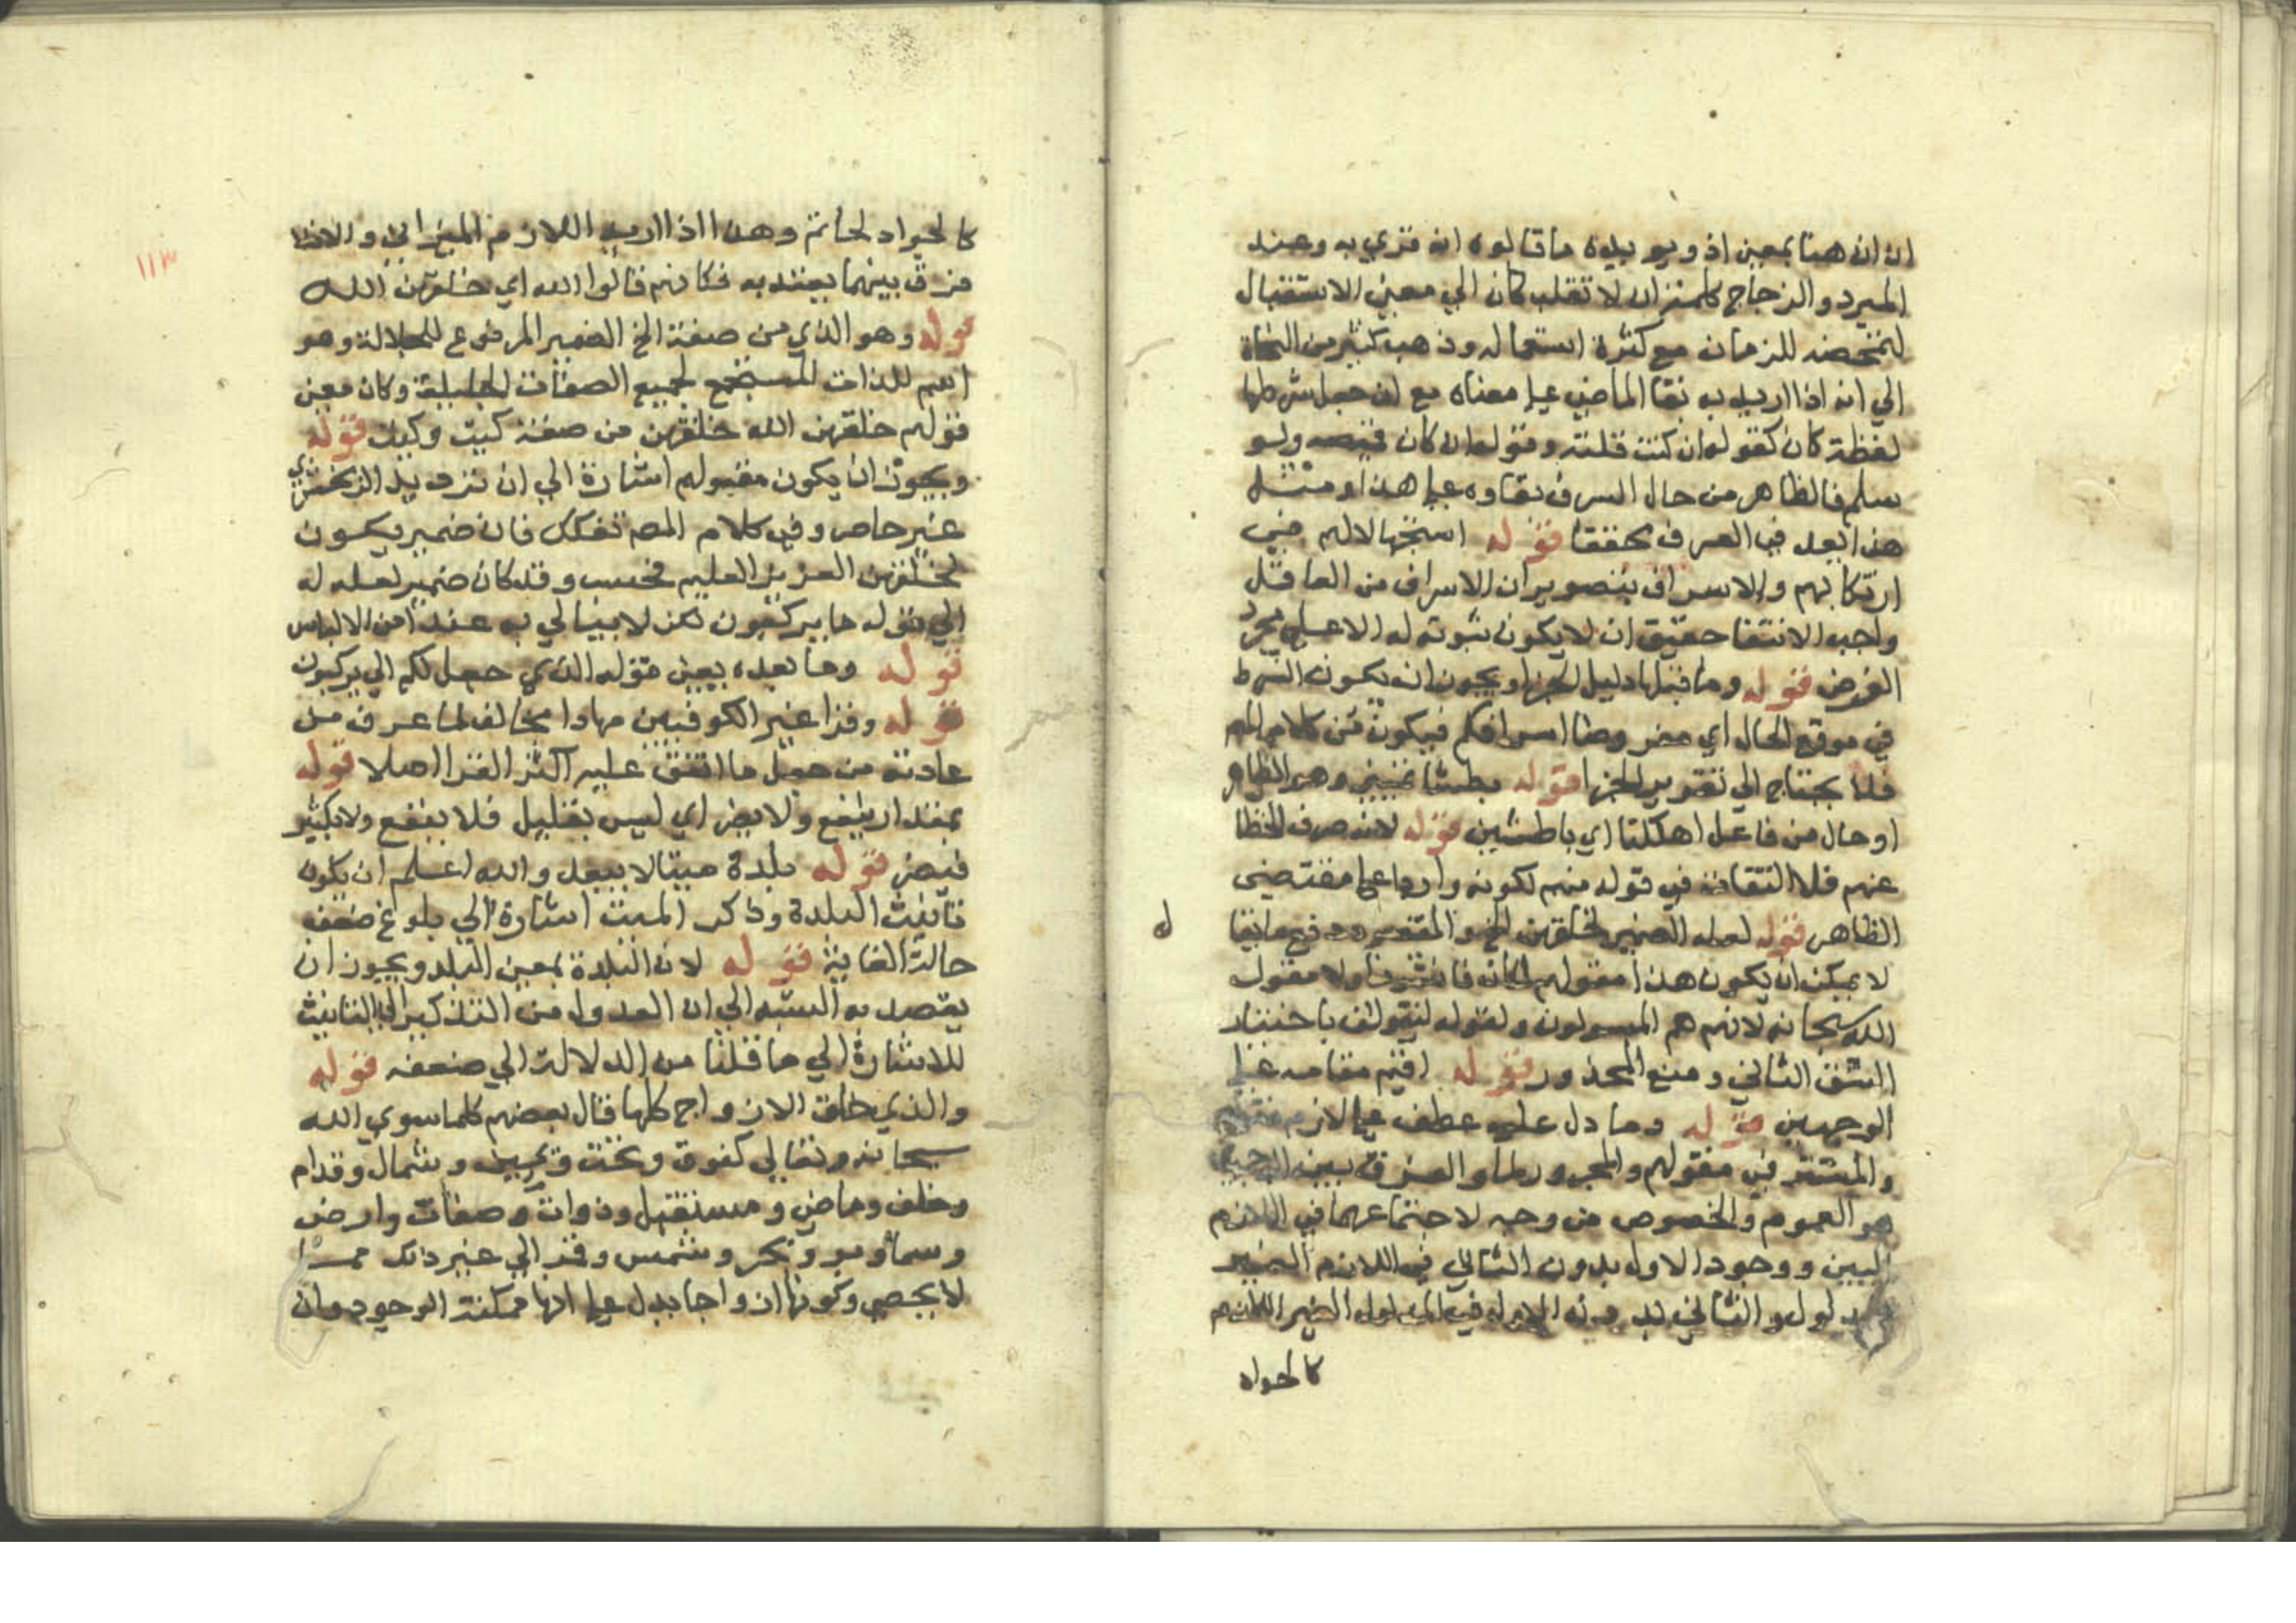 ان ان هنا بمعنى اذ ويويده ما قالوه انه قري به وعند
المبرد والزجاج كلمة ان لا تقلب كان الي معني الاستقبال
لتمحضه للزمان مع كثرة استعماله وذهب كثير من النحاة
الي انه اذا اريد به بقا الماضي علي معناه مع ان جعل شرطها
لفظة كان كقوله ان كنت قلته وقوله ان كان قميصه ولو
سلم فالظاهر من حال السرف بقاوه علي هذا ومثل
هذا يعد في العرف محققا قوله استجهالا لهم في
ارتكابهم والاسراف بتصوير ان الاسراف من العاقل
واجب الانتفا حقيق ان لا يكون ثبوته له الا علي مجرد
الفرض قوله وما قبلها دليل الجزا ويجوز ان يكون الشرط
في موقع الحال اي مفروضا اسرافكم فيكون من كلام المص
فلا يحتاج الي تقدير الجزا قوله بطشا تمييز وهو الظاهر
او حال من فاعل اهلكنا اي باطشين قوله لانه صرف الخطا
عنهم فلا التفات في قوله منهم لكونه واردا علي مقتضى
الظاهر قوله لعله الضمير لخلقهن الخ والمقصود دفع ما يقا
ل
لا يمكن ان يكون هذا مقولهم لمكان فانشرنا ولا مقول
الله سبحانه لانهم هم المسولون ولقوله ليقولن باختيار
الشق الثاني ومنع المحذور قوله اقيم مقامه علي
الوجهين قوله وما دل عليه عطف علي لازم مقولهم
والمستتر في مقولهم والمجرور لما والفرق بين الوجهين
هو العموم والخصوص من وجه لاجتماعهما في اللازم
البين ووجود الاول بدون الثاني في اللازم الغير
المدلول والثاني بدون الاول في المدلول الغير اللازم
كالجواد
١١٣
كالجواد لحاتم وهذا اذا اريد اللازم الميزاني والافلا
فرق بينهما يعتد به فكانهم قالوا الله اي خلقهن الله
قوله وهو الذي من صفته الخ الضمير المرفوع للجلالة وهو
اسم للذات المستجمع لجميع الصفات الجليلة وكان معنى
قولهم خلقهن الله خلقهن من صفته كيت وكيت قوله
ويجوز ان يكون مقولهم اشارة الي ان ترديد الزمخشري
غير حاصر وفي كلام المص تفكك فان ضمير يكون
لخلقهن العزيز العليم فحسب وقد كان ضمير لعله له
الي قوله ما يركبون لكن لا يبالي به عند امن الالباس
قوله وما بعده يعني قوله الذي جعل لكم الي يركبون
قوله وقرا غير الكوفيين مهادا مخالف لما عرف من
عادته من جعل ما اتفق عليه اكثر القرا اصلا قوله
بمقدار ينفع ولا يضر اي ليس بقليل فلا ينفع ولا بكثير
فيضر قوله بلدة ميتا لا يبعد والله اعلم ان يكون
تانيث البلدة وذكر الميت اشارة الي بلوغ ضعف
حالة الغاية قوله لان البلدة بمعنى البلد ويجوز ان
يقصد به التنبيه الي ان العدول من التذكير الي التانيث
للاشارة الي ما قلنا من الدلالة الي ضعفه قوله
والذي خلق الازواج كلها قال بعضهم كلما سوي الله
سبحانه وتعالي كفوق وتحت ويمين وشمال وقدام
وخلف وماض ومستقبل وذوات وصفات وارض
وسما وبر وبحر وشمس وقمر الي غير ذلك مما
لا يحصي وكونها ازواجا يدل علي انها ممكنة الوجود وان